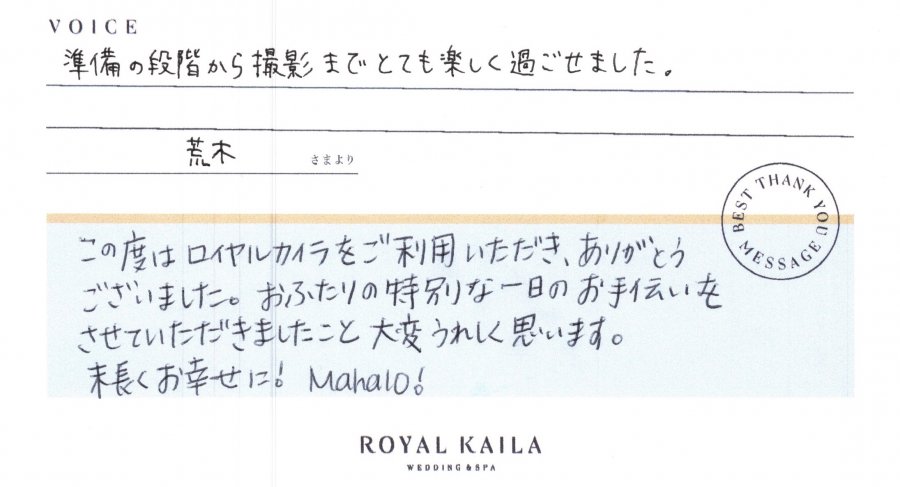 VOICE
準備の段階から撮影までとても楽しく過ごせました。
荒木 さまより
BEST THANK YOU MESSAGE
この度はロイヤルカイラをご利用いただき、ありがとう
ございました。おふたりの特別な一日のお手伝いを
させていただきましたこと大変うれしく思います。
末長くお幸せに! Mahalo!
ROYAL KAILA
WEDDING & SPA